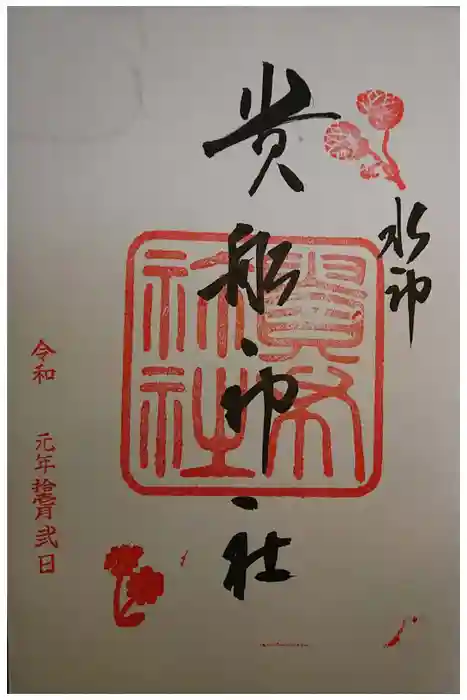 水神
貴船神社
貴布
祢社
令和 元年拾壱月弐日